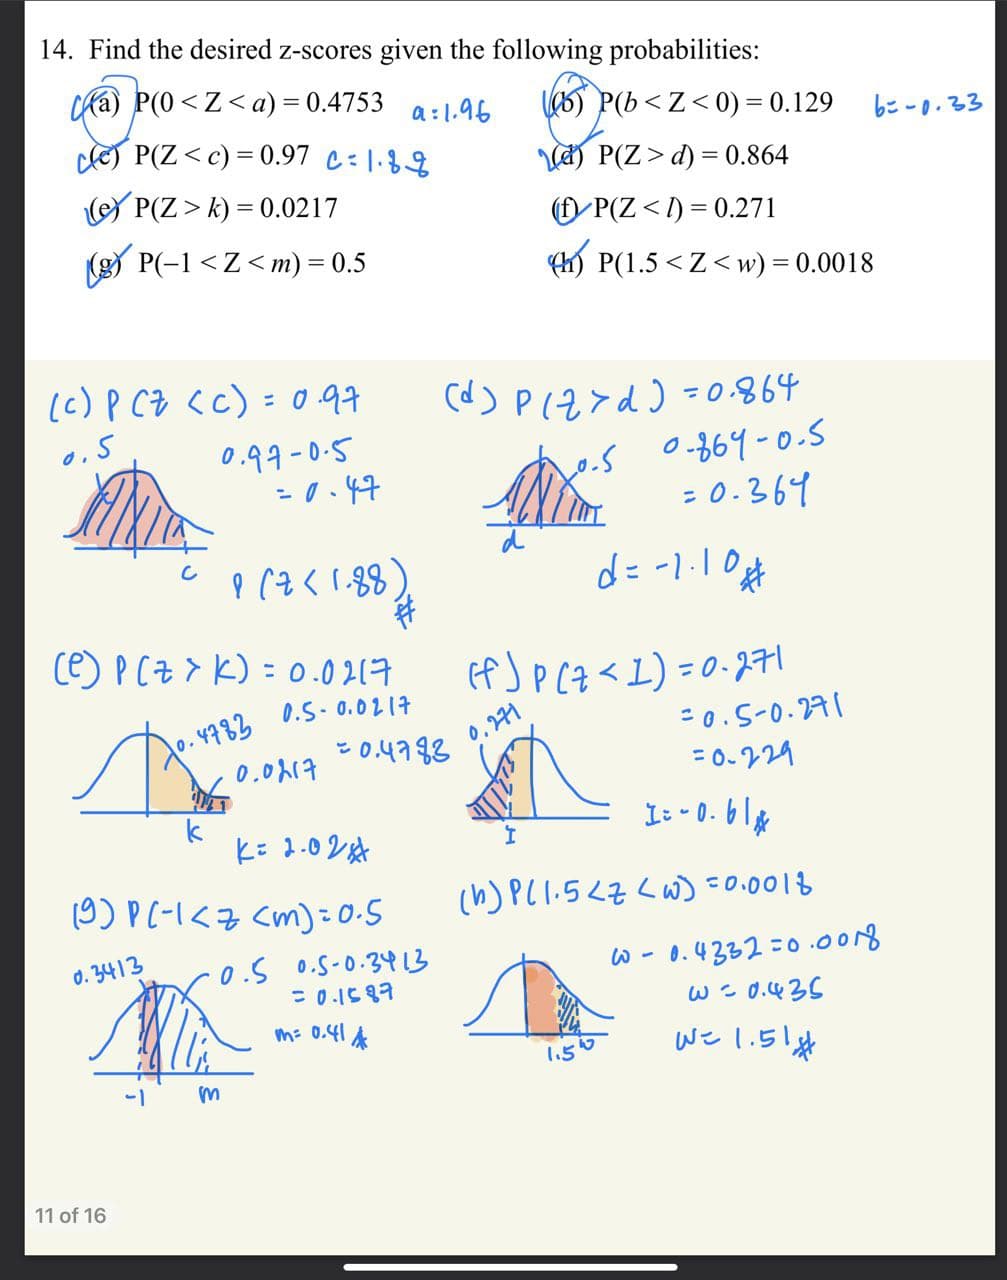 14. Find the desired z-scores given the following probabilities:
(a) P(0 < Z < a) = 0.4753 a = 1.96 (b) P(b < Z < 0) = 0.129 b = -0.33
(c) P(Z < c) = 0.97 c = 1.88 (d) P(Z > d) = 0.864
(e) P(Z > k) = 0.0217 (f) P(Z < l) = 0.271
(g) P(−1 < Z < m) = 0.5 (h) P(1.5 < Z < w) = 0.0018
(c) P(Z < c) = 0.97
0.5
0.97 - 0.5
= 0.47
c
P(Z < 1.88)#
(d) P(Z > d) = 0.864
0.5
0.864 - 0.5
= 0.364
d
d = -1.10#
(e) P(Z > k) = 0.0217
0.5 - 0.0217
0.4783
= 0.4783
0.0217
k
k = 2.02#
(f) P(Z < I) = 0.271
0.271
= 0.5 - 0.271
= 0.229
I
I = -0.61#
(g) P(-1 < Z < m) = 0.5
0.3413
0.5
0.5 - 0.3413
= 0.1587
m = 0.41#
-1 m
(h) P(1.5 < Z < w) = 0.0018
w - 0.4332 = 0.0018
w = 0.435
1.5 w
w = 1.51#
11 of 16